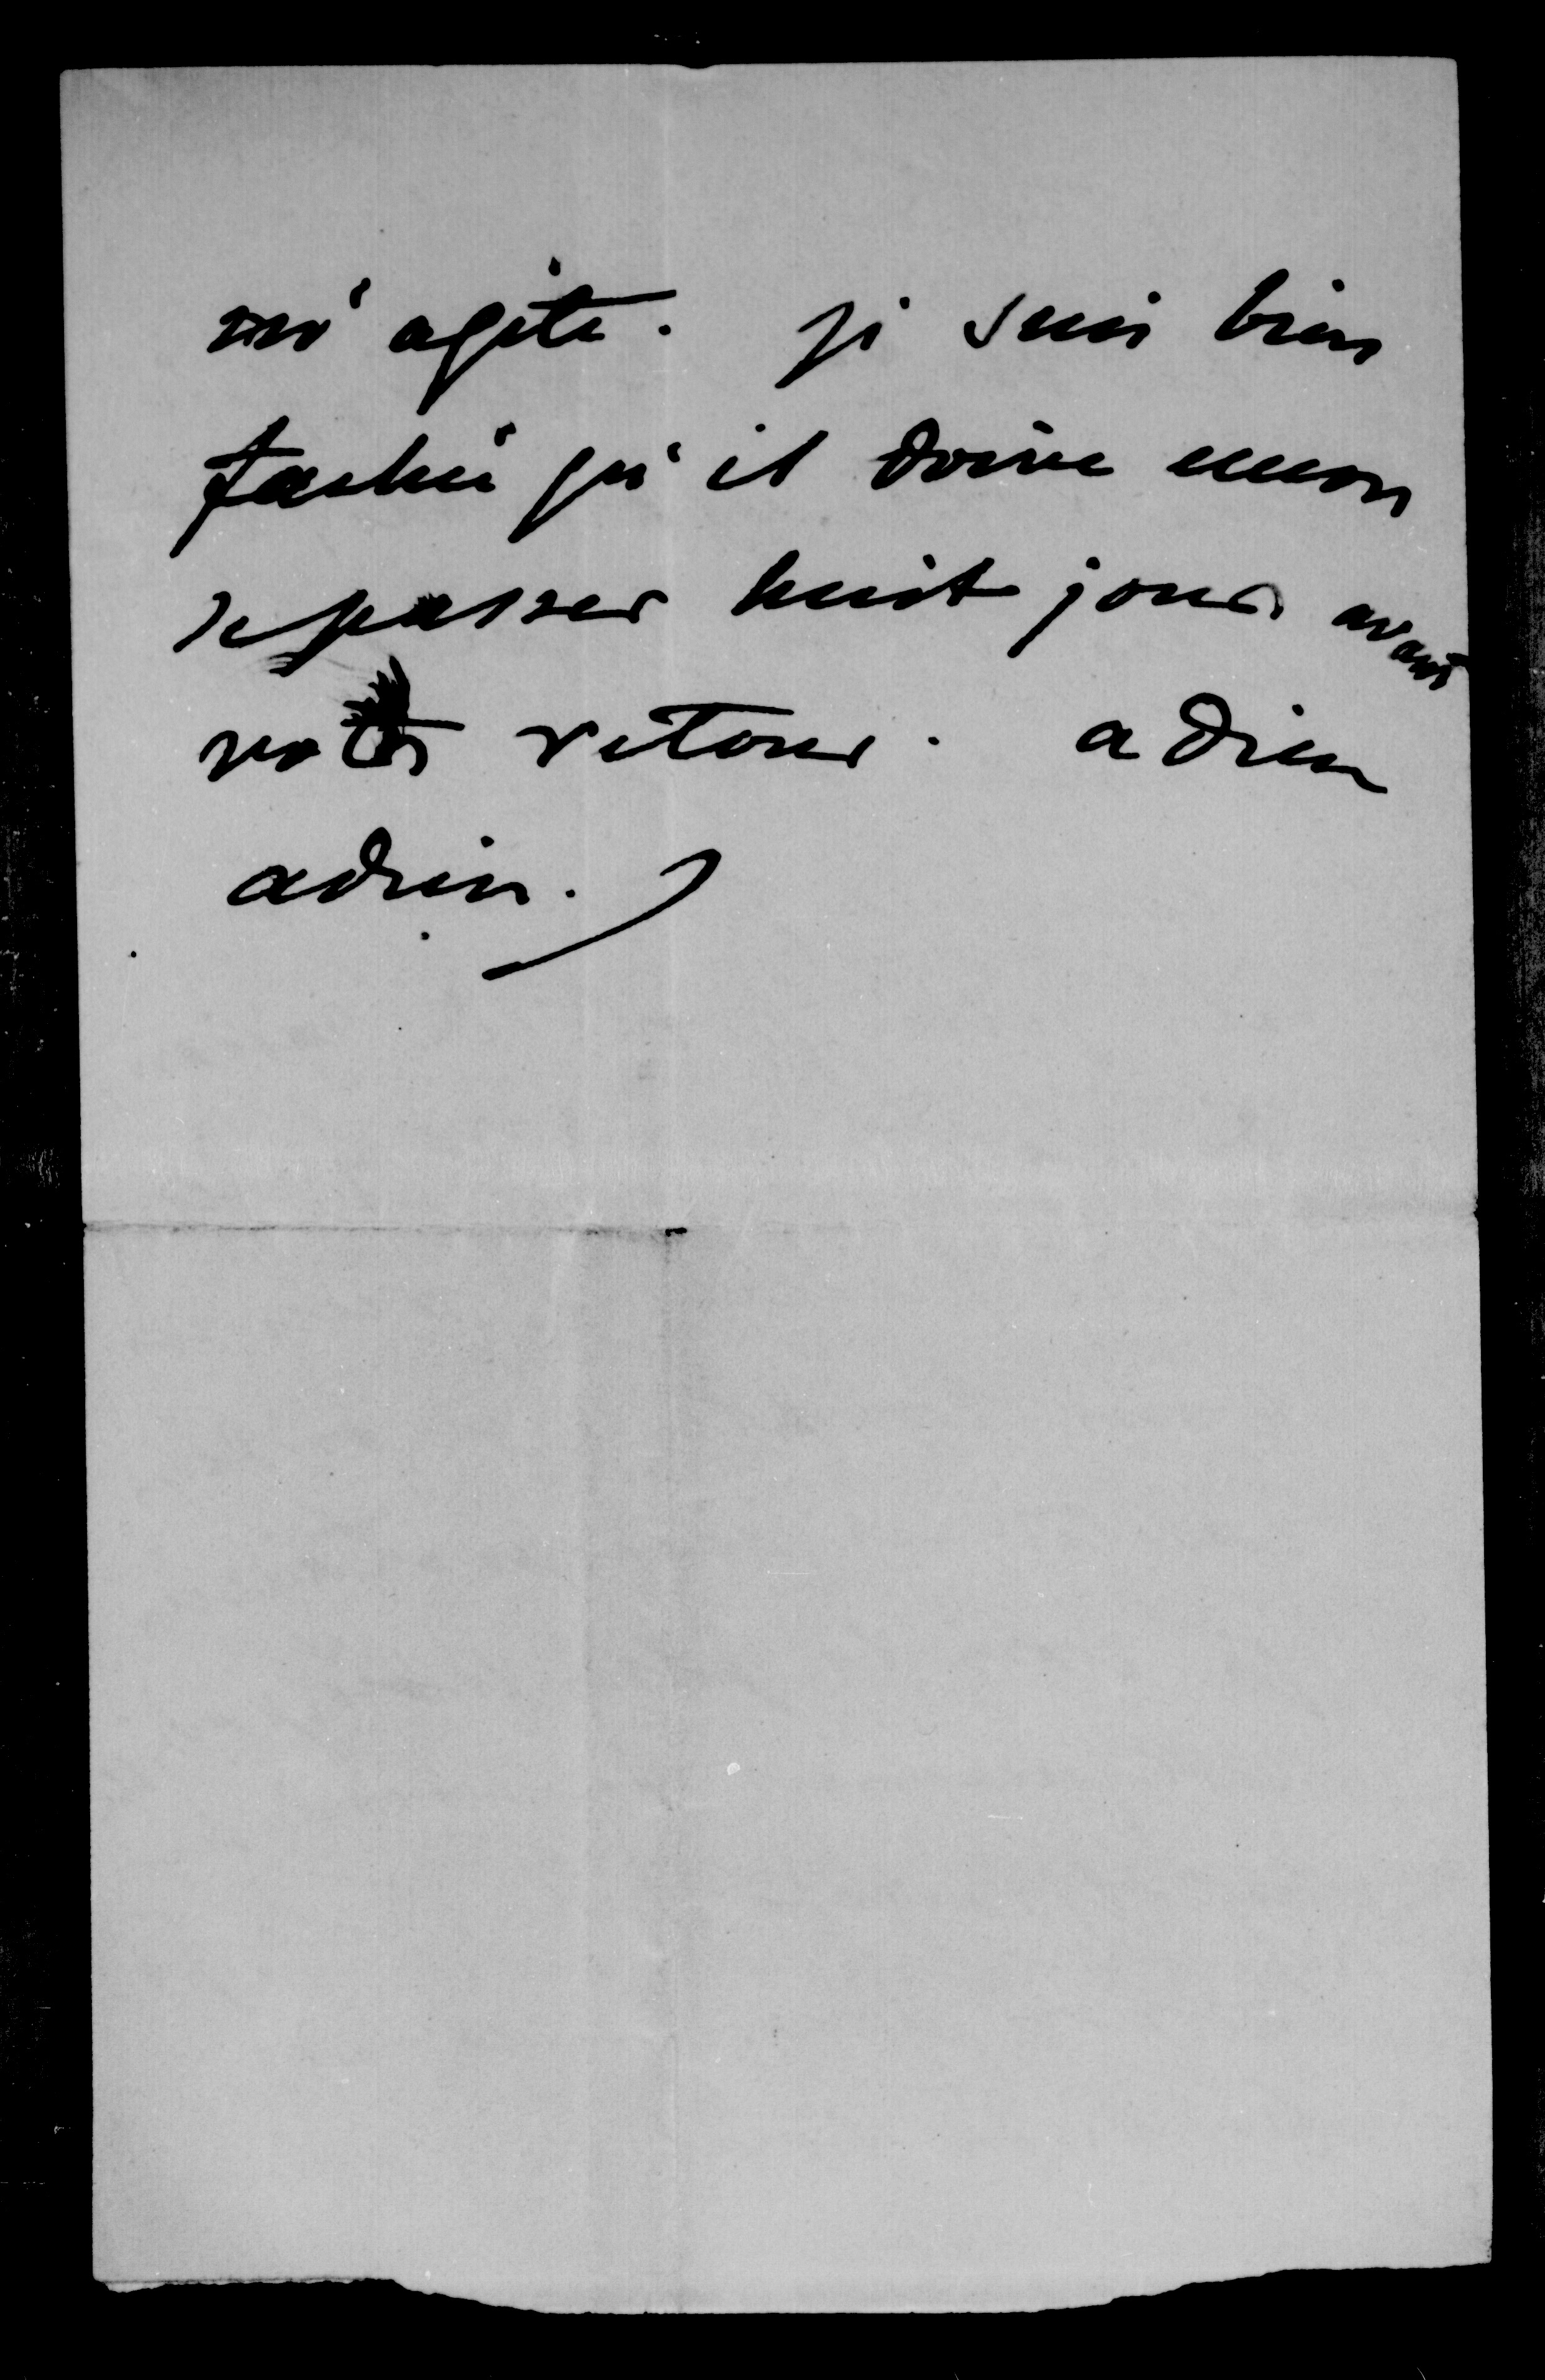 m'agite. je suis bien
fachée qu'il doive encore
se passer huit jours avant
votre retour. adieu
adieu.